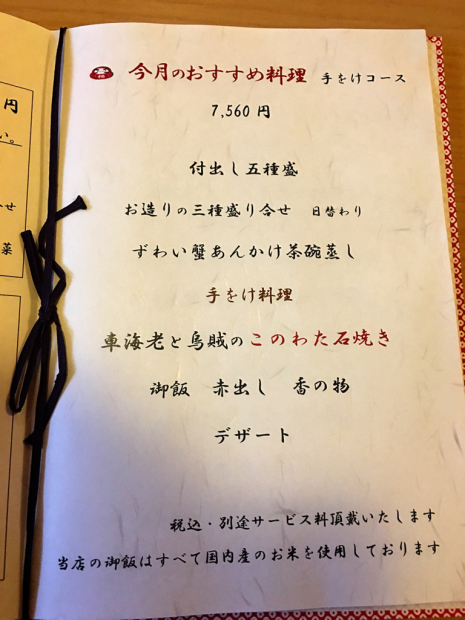 今月のおすすめ料理 手をけコース
7,560 円
付出し五種盛
お造りの三種盛り合せ 日替わり
ずわい蟹あんかけ茶碗蒸し
手をけ料理
車海老と烏賊のこのわた石焼き
御飯 赤出し 香の物
デザート
税込・別途サービス料頂戴いたします
当店の御飯はすべて国内産のお米を使用しております
円
い。
せ
菜